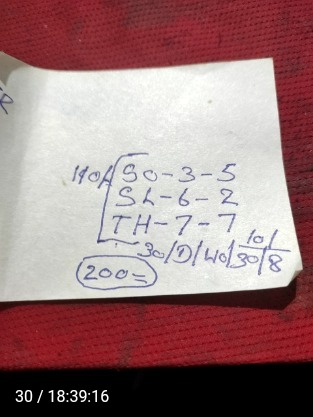 R
110/ SO-3-5
SL-6-2
TH-7-7
30/D/40/30/8
10/
200=
30 / 18:39:16